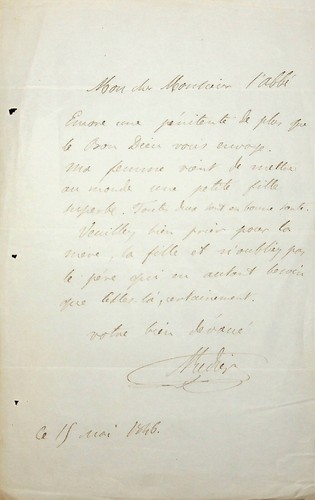 Mon cher Monsieur l'abbé
Encore une pénitente de plus que
le Bon Dieu vous envoye.
Ma femme vient de mettre
au monde une petite fille
superbe. Toutes deux sont en bonne santé.
Veuillez bien prier pour la
mère, la fille et n'oubliez pas
le père qui en a autant besoin
que celles-là, certainement.
votre bien dévoué
ce 15 mai 1846.